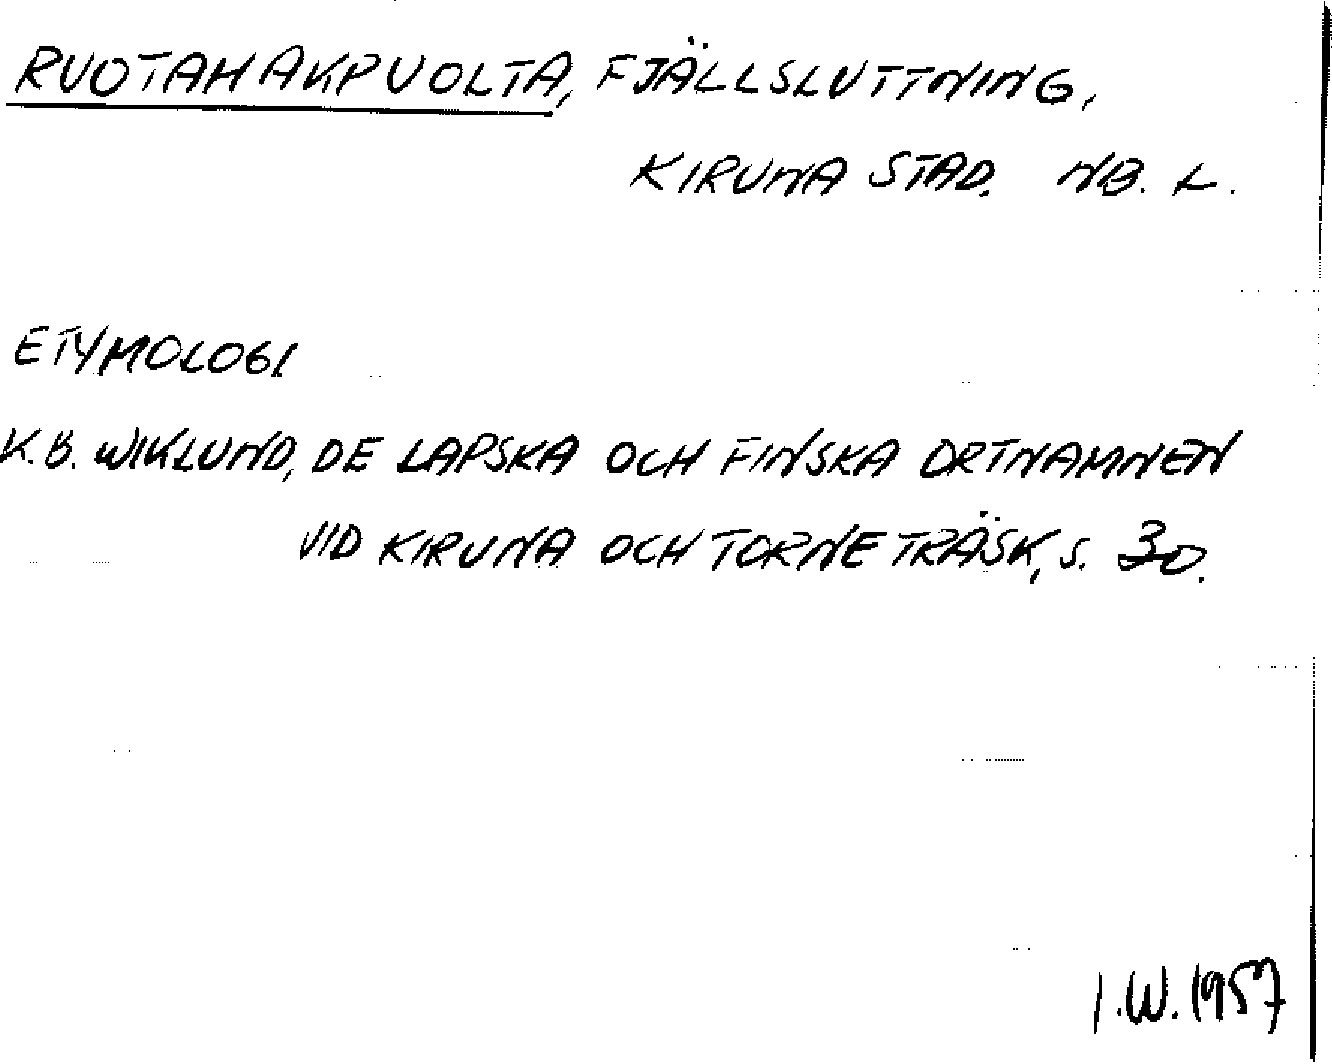 RUOTAHAKPUOLTA, FJÄLLSLUTTNING,
KIRUNA STAD. NB. L.
ETYMOLOGI
K.B. WIKLUND, DE LAPSKA OCH FINSKA ORTNAMNEN
VID KIRUNA OCH TORNE TRÄSK, S. 30.
I.W. 1957